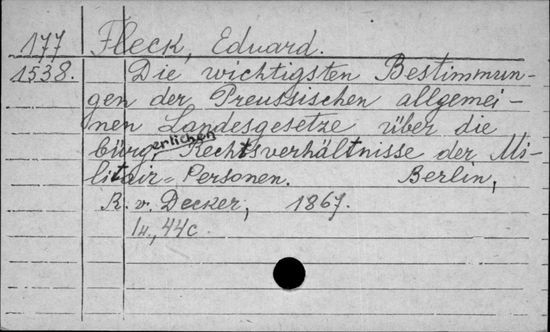 177 Fleck, Eduard.
1538. Die wichtigsten Bestimmun-
gen der Preussischen allgemei-
nen Landesgesetze über die
bürgerlichen Rechtsverhältnisse der Mi-
litair-Personen. Berlin,
R. v. Decker, 1867.
44c.